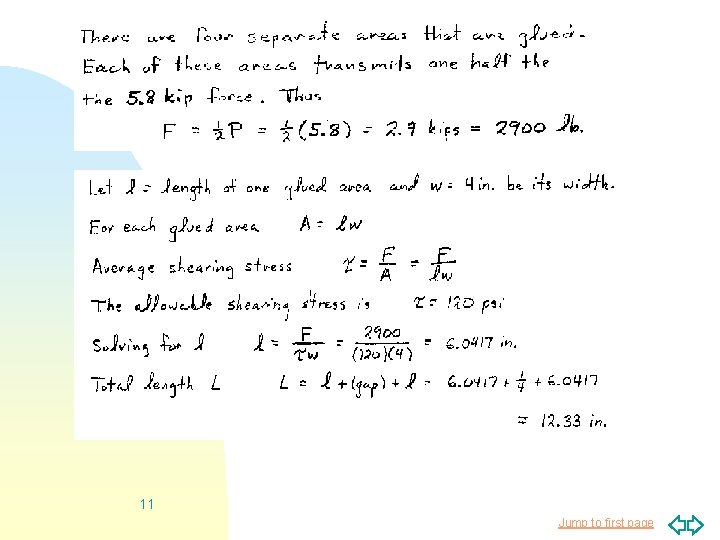 There are four separate areas that are glued.
Each of these areas transmits one half the
the 5.8 kip force. Thus
F = ½P = ½(5.8) = 2.9 kips = 2900 lb.
Let l = length of one glued area and w = 4 in. be its width.
For each glued area A = lw
Average shearing stress τ = F/A = F/lw
The allowable shearing stress is τ = 120 psi
Solving for l l = F/τw = 2900/(120)(4) = 6.0417 in.
Total length L L = l + (gap) + l = 6.0417 + ¼ + 6.0417
= 12.33 in.
11
Jump to first page